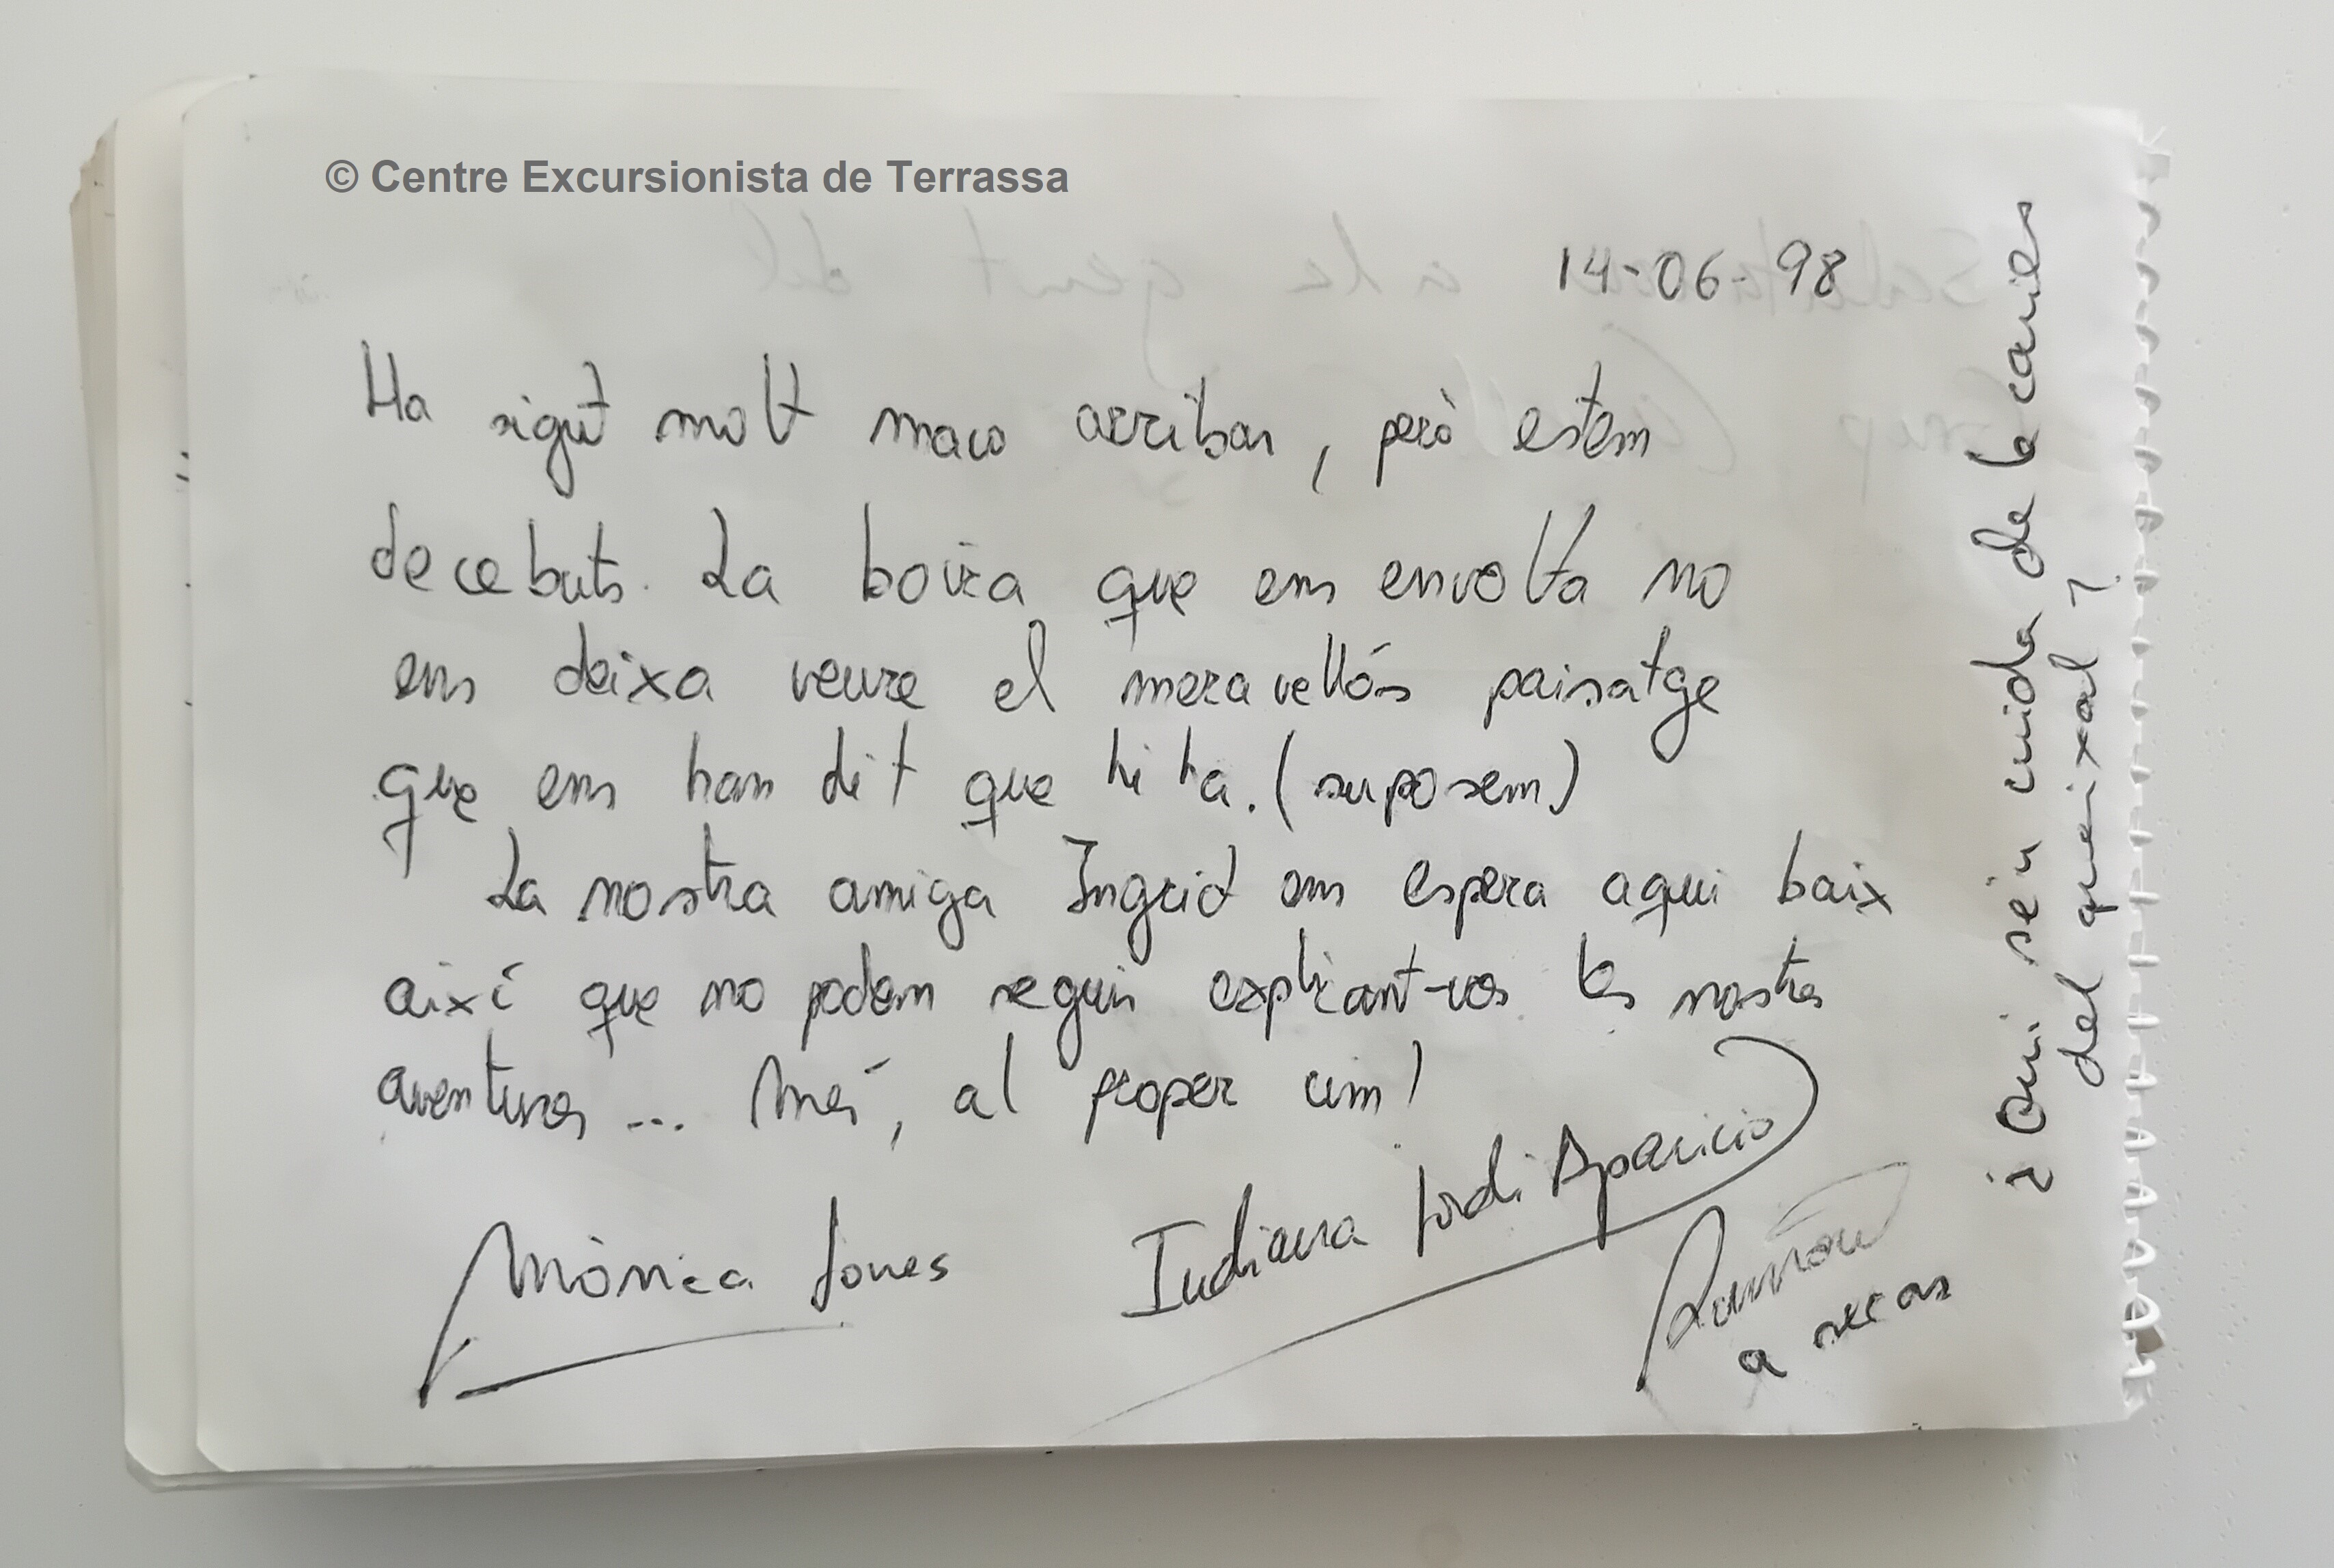 © Centre Excursionista de Terrassa
14-06-98
Ha sigut molt maco arribar, però estem
decebuts. La boira que ens envolta no
ens deixa veure el meravellós paisatge
que ens han dit que hi ha. (suposem)
La nostra amiga Ingrid ens espera aqui baix
així que no podem seguir explicant-vos les nostres
aventures... Més, al proper cim!
Mònica Jones
Indiana Jordi Aparicio
Ramón
a secas
¿Qui se'n cuida de la caries
del queixal?